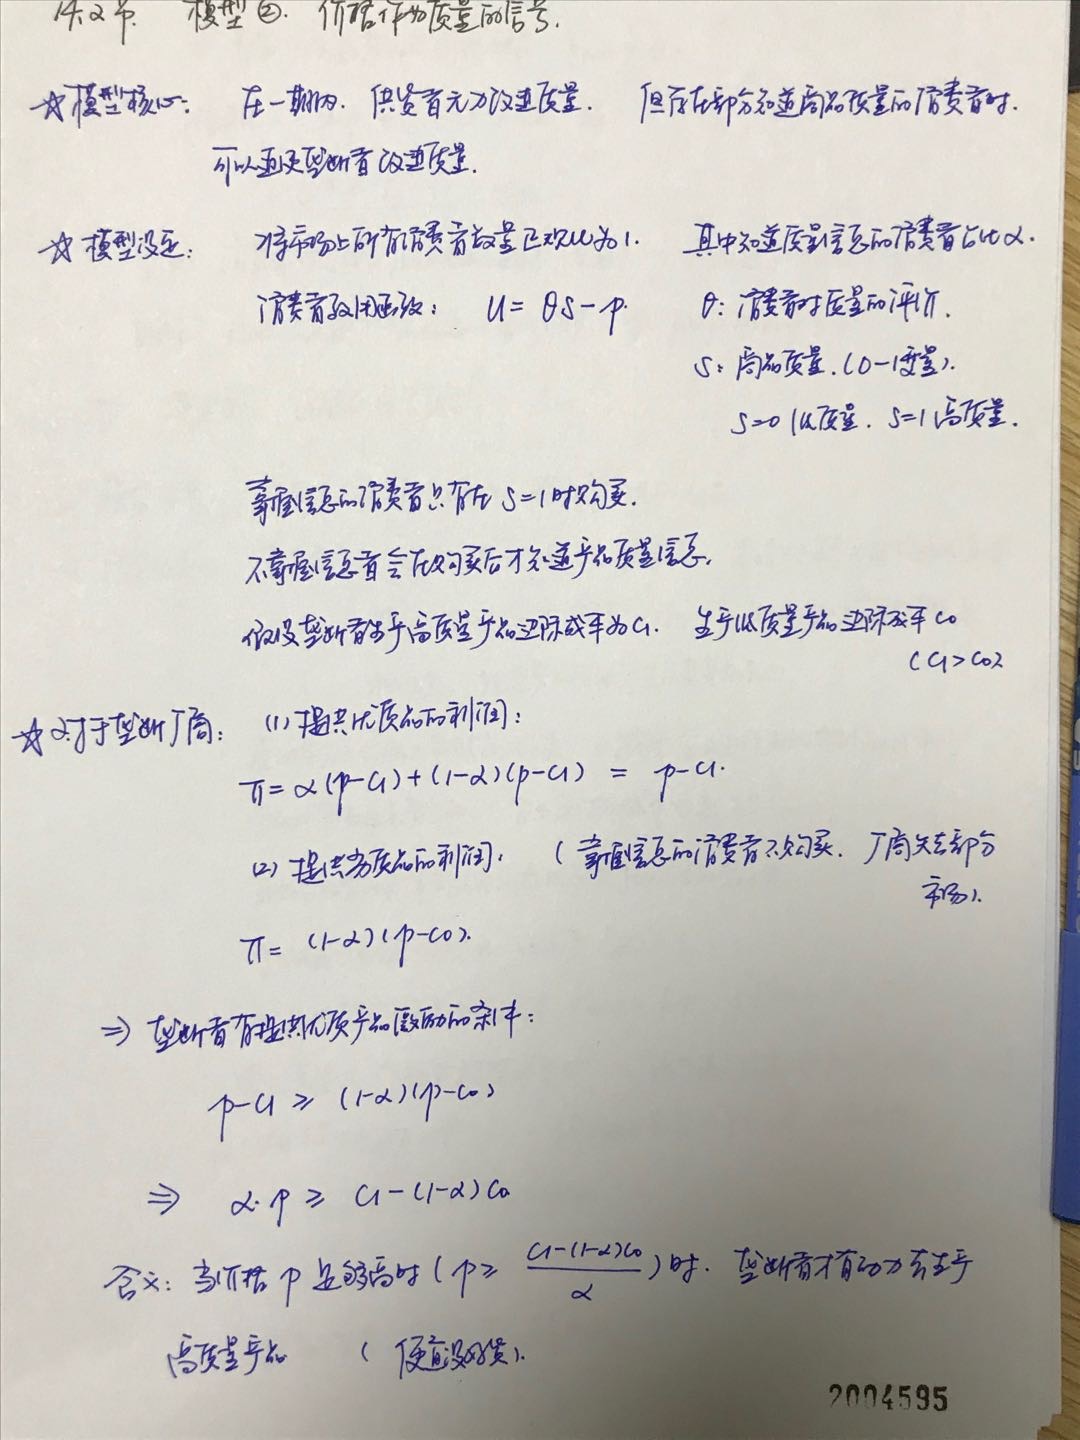 模型②. 价格作为质量的信号.
☆模型核心: 在一期内. 供货者无力改进质量. 但存在部分知道商品质量的消费者时.
可以迫使垄断者改进质量.
☆模型设定: 将市场上所有消费者数量正规化为1. 其中知道质量信息的消费者占比α.
消费者效用函数: U = θS - p. θ: 消费者对质量的评价.
S: 商品质量. (0-1变量).
S=0 低质量. S=1高质量.
掌握信息的消费者只有在 S=1时购买.
不掌握信息者会在购买后才知道产品质量信息.
假设垄断者生产高质量产品边际成本为C1. 生产低质量产品边际成本C0
(C1>C0)
☆对于垄断厂商: (1)提供优质品的利润:
π = α(p-C1)+(1-α)(p-C1) = p-C1.
(2) 提供劣质品的利润. (掌握信息的消费者不购买. 厂商失去部分
市场).
π = (1-α)(p-C0).
⇒ 垄断者有提供优质产品激励的条件:
p-C1 ≥ (1-α)(p-C0)
⇒ α·p ≥ C1-(1-α)C0
含义: 当价格p足够高时(p≥ C1-(1-α)C0 / α )时. 垄断者才有动力去生产
高质量产品 (便宜没好货).
2004595